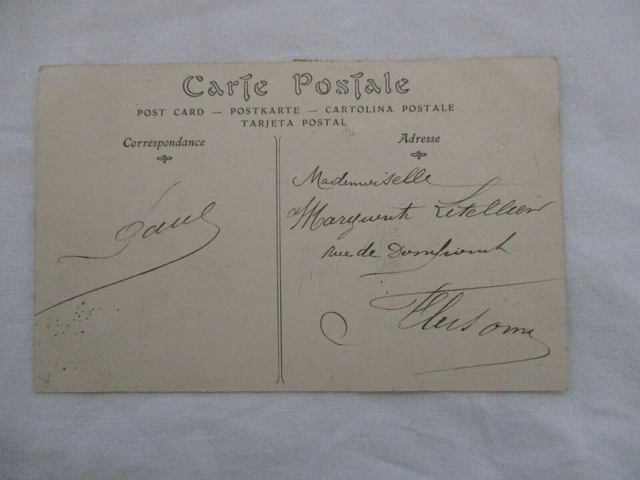 Carte Postale
POST CARD — POSTKARTE — CARTOLINA POSTALE
TARJETA POSTAL
Correspondance
Adresse
Paul
Mademoiselle
Marguerite Letellier
rue de Domfront
Flers Orne